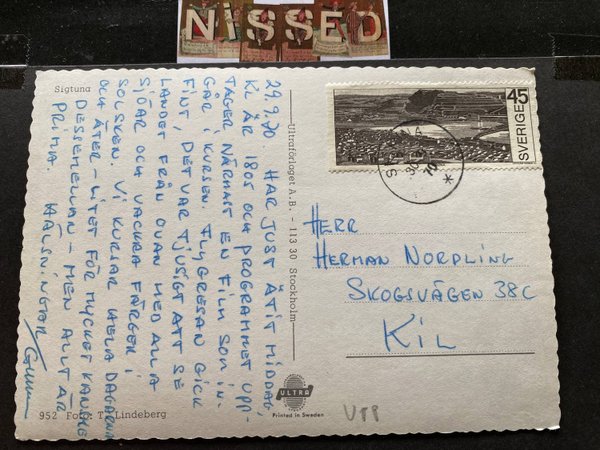 NISSED
Sigtuna
29.9.70 HAR JUST ÄTIT MIDDAG,
KL ÄR 1805 OCH PROGRAMMET UPP-
TAGER NÄRMAST EN FILM SOM IN-
GÅR I KURSEN. FLYGRESAN GICK
FINT, DET VAR TJUSIGT ATT SE
LANDET FRÅN OVAN MED ALLA
SJÖAR OCH VACKRA FÄRGER I
SOLSKEN. VI KURSAR HELA DAGARNA
OCH ÄTER - LITET FÖR MYCKET KANSKE
DESSEMELLAN - MEN ALLT ÄR
PRIMA.
HÄLSNINGAR
952 Foto: T. Lindeberg
Ultraförlaget A.B. - 113 30 Stockholm
ULTRA
Printed in Sweden
45
SVERIGE
HERR
HERMAN NORDLING
SKOGSVÄGEN 38C
KIL